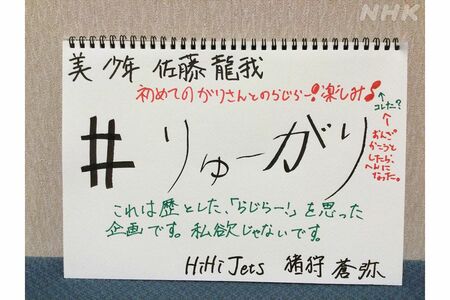 NHK
美 少年 佐藤 龍我
初めてのがりさんとのらじらー!楽しみ♪
↑
コレた?
↑
おんぷ
かこうと
したら、
へんに
なった。
#りゅーがり
これは歴とした、「らじらー!」を思った
企画です。私欲じゃないです。
HiHi Jets 猪狩 蒼弥